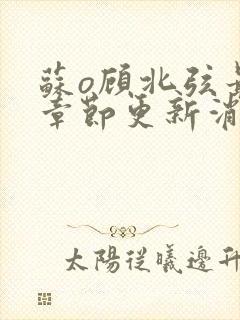 蘇o顾北弦最
章節更新消
太陽從曦邊升